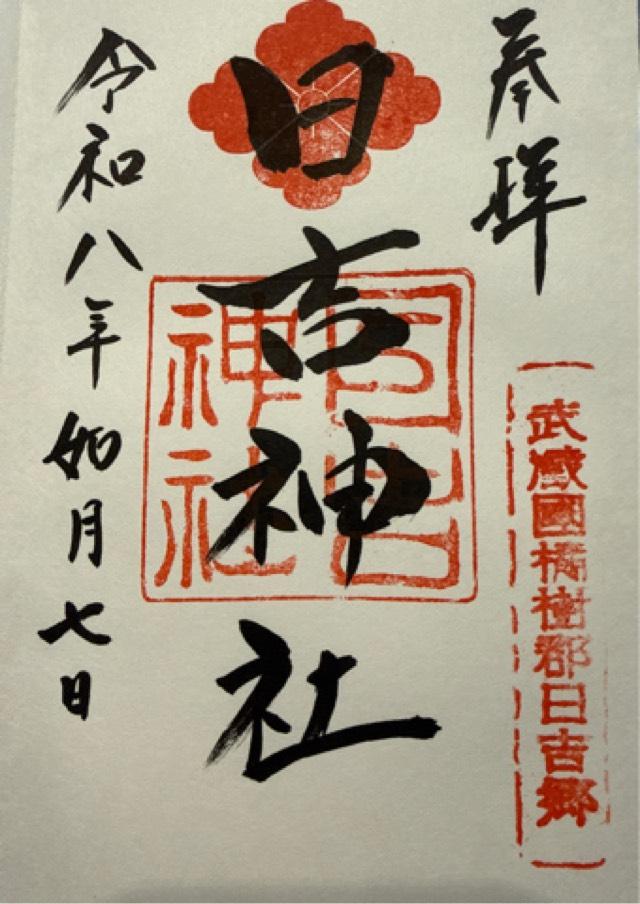 奉拝
武蔵國橘樹郡日吉郷
日吉神社
日吉神社
令和八年如月七日